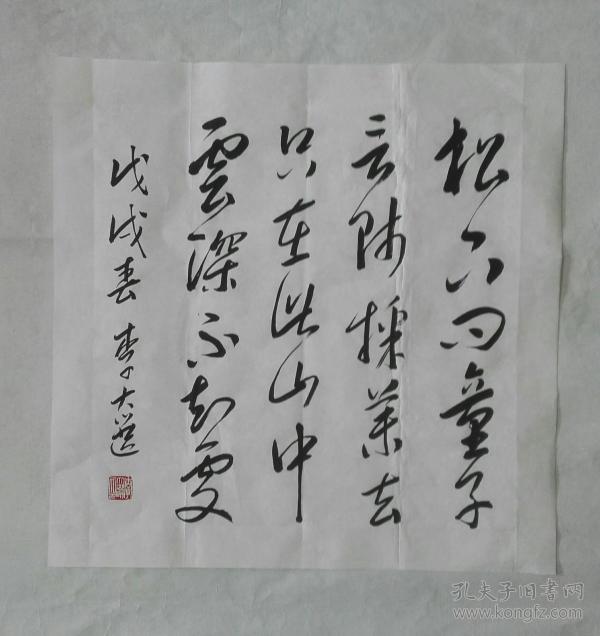 松下问童子
言师採药去
只在此山中
雲深不知处
戊戌春 李大遥
孔夫子旧书网
www.kongfz.com